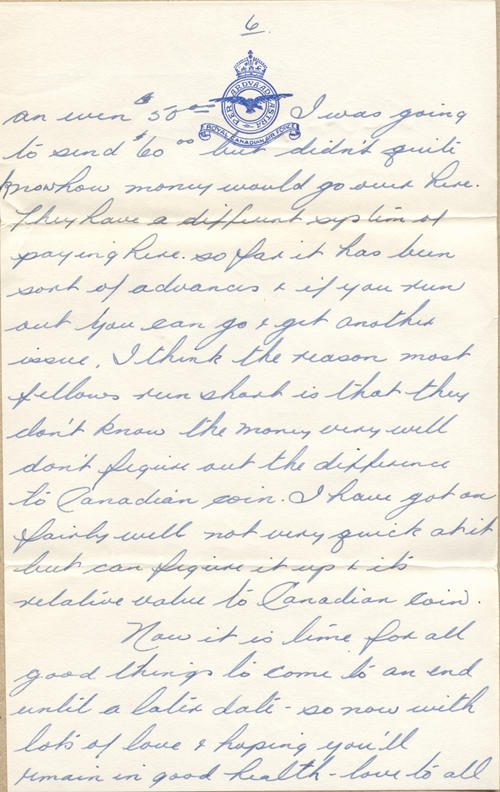 6.
PER ARDVA AD ASTRA
ROYAL CANADIAN AIR FORCE
an even $50.00 I was going
to send $60.00 but didn't quite
know how money would go over here.
They have a different system of
paying here. so far it has been
sort of advances & if you run
out you can go & get another
issue. I think the reason most
fellows run short is that they
don't know the money very well
don't figure out the difference
to Canadian coin. I have got on
fairly well not very quick at it
but can figure it up & its
relative value to Canadian coin.
Now it is time for all
good things to come to an end
until a later date - so now with
lots of love & hoping you'll
remain in good health - love to all